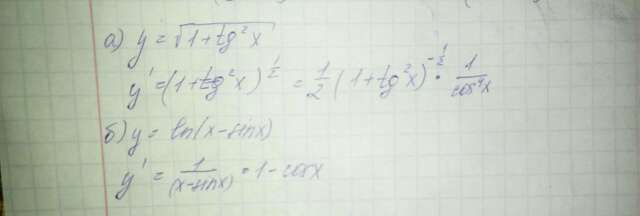 а) y = √(1+tg²x)
y' = (1+tg²x)^(1/2) = 1/2 (1+tg²x)^(-1/2) · 1/cos⁴x
б) y = ln(x-sinx)
y' = 1/(x-sinx) · 1-cosx